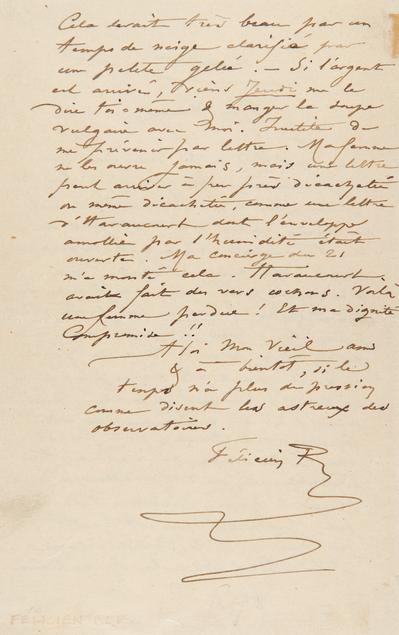 Cela serait très beau par un
temps de neige clarifié par
un petite gelée. – Si l'argent
est arrivé, viens Jeudi me le
dire toi-même & manger la soupe
vulgaire avec moi. Inutile de
me prévenir par lettre. Ma femme
ne les ouvre jamais, mais une lettre
peut arriver à peu près décachetée
ou même décachetée, comme une lettre
d'Haraucourt dont l'enveloppe
amollie par l'humidité était
ouverte. Ma concierge du 21
m'a monté cela. Haraucourt
avait fait des vers cochons. Voilà
une femme perdue! Et ma dignité
Compromise!!
A toi Mon Vieil ami
& à bientôt, si le
temps n'a plus de pression
comme disent les astreux des
observatoires.
Félicien R
FÉLICIEN